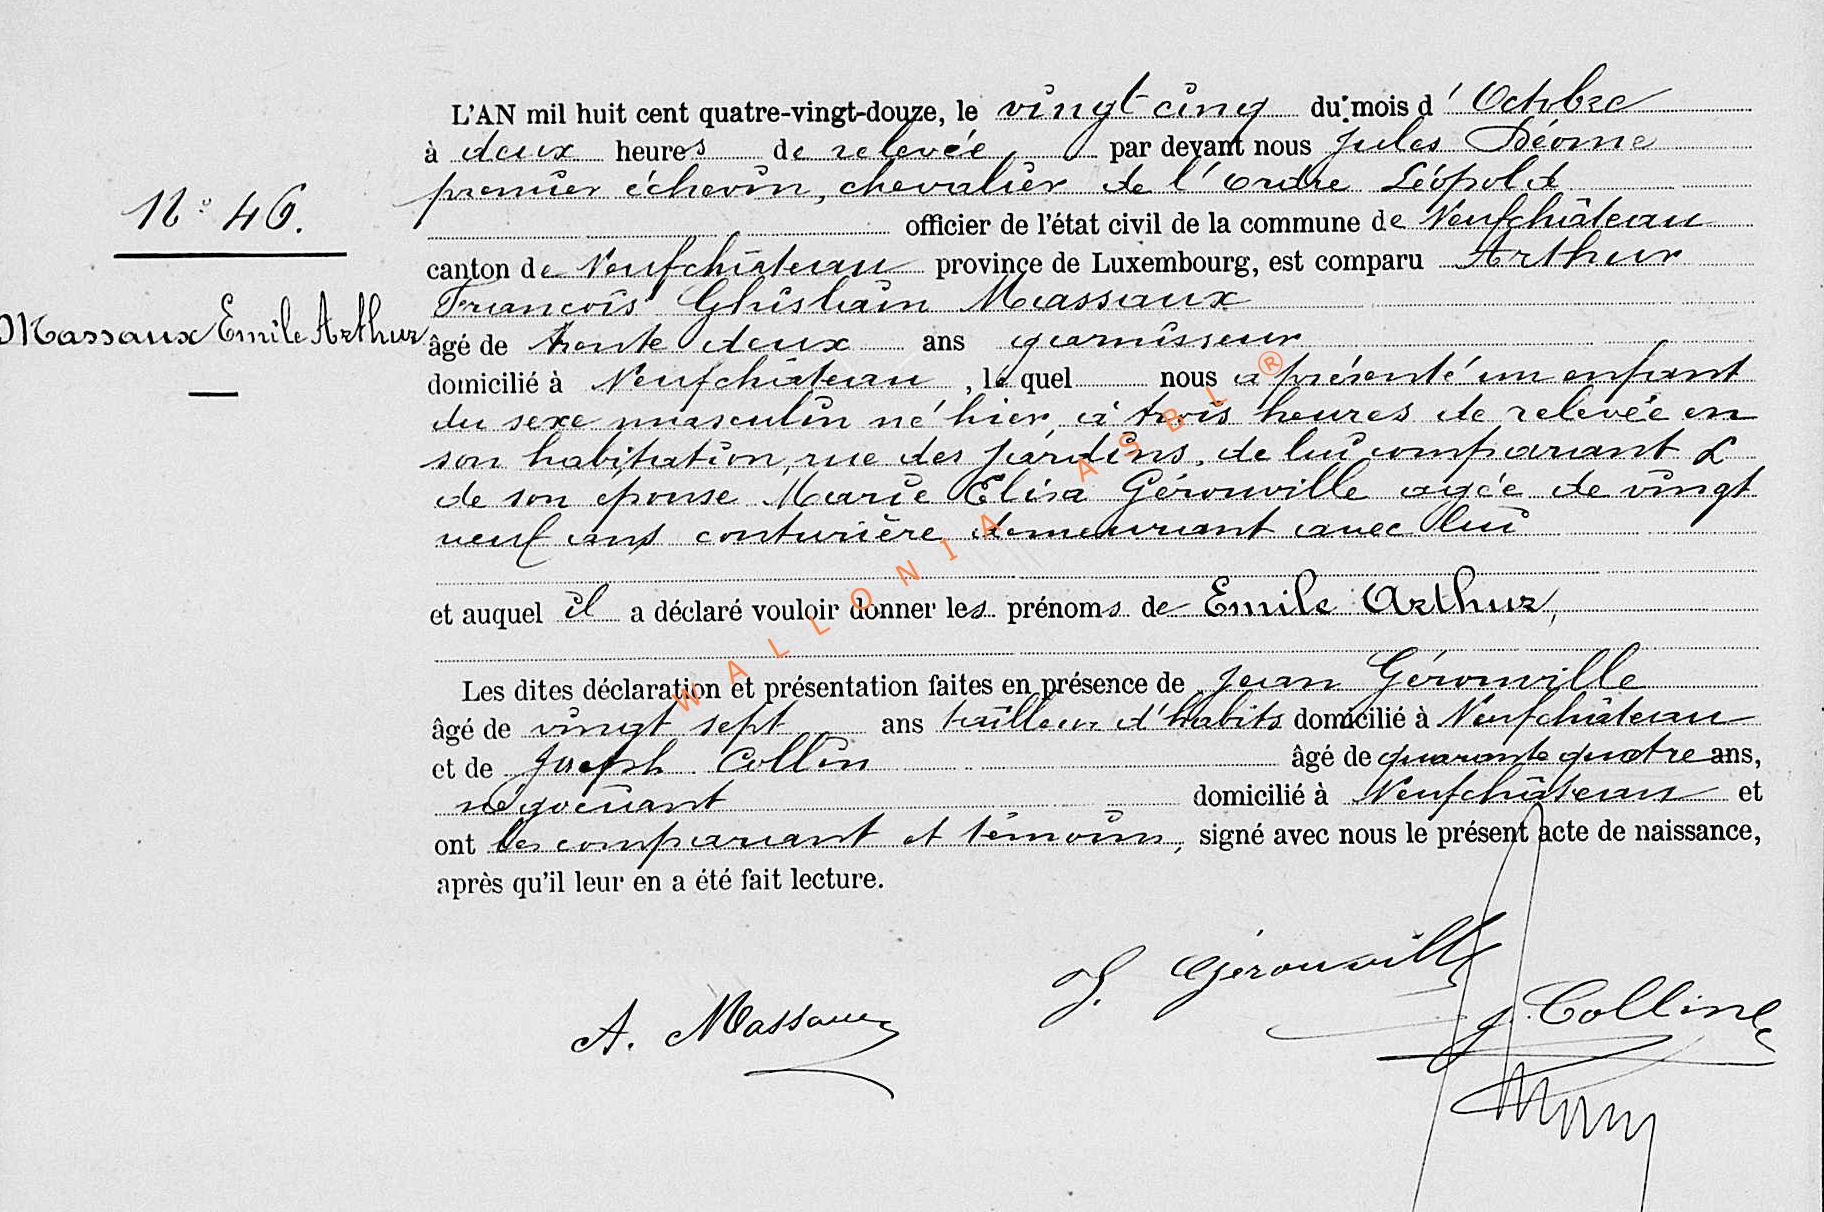 N° 46.
Massaux Emile Arthur
L'AN mil huit cent quatre-vingt-douze, le vingt cinq du mois d'Octobre
à deux heures de relevée par devant nous Jules Déome
premier échevin, chevalier de l'ordre Léopold
officier de l'état civil de la commune de Neufchâteau
canton de Neufchâteau province de Luxembourg, est comparu Arthur
François Ghislain Massaux
âgé de trente deux ans garnisseur
domicilié à Neufchâteau, lequel nous a présenté un enfant
du sexe masculin né hier à trois heures de relevée en
son habitation, rue des jardins, de lui comparant &
de son épouse Marie Elisa Gérouville agée de vingt
neuf ans couturière demeurant avec lui
et auquel il a déclaré vouloir donner les prénoms de Emile Arthur,
Les dites déclaration et présentation faites en présence de Jean Gérouville
âgé de vingt sept ans tailleur d'habits domicilié à Neufchâteau
et de Joseph Collin âgé de quarante quatre ans,
négociant domicilié à Neufchâteau et
ont les comparant et témoins, signé avec nous le présent acte de naissance,
après qu'il leur en a été fait lecture.
J. Gérouville
A. Massaux
J. Colline
WALLONIA ASBL ®